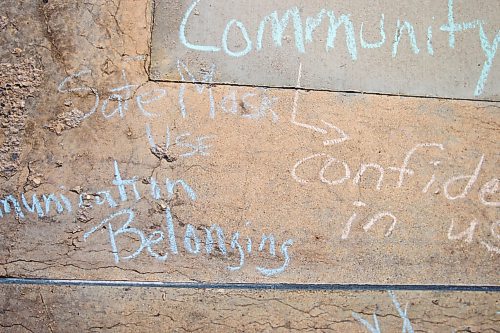 Community
Safe Mask
Use
confide
in us
munication
Belonging